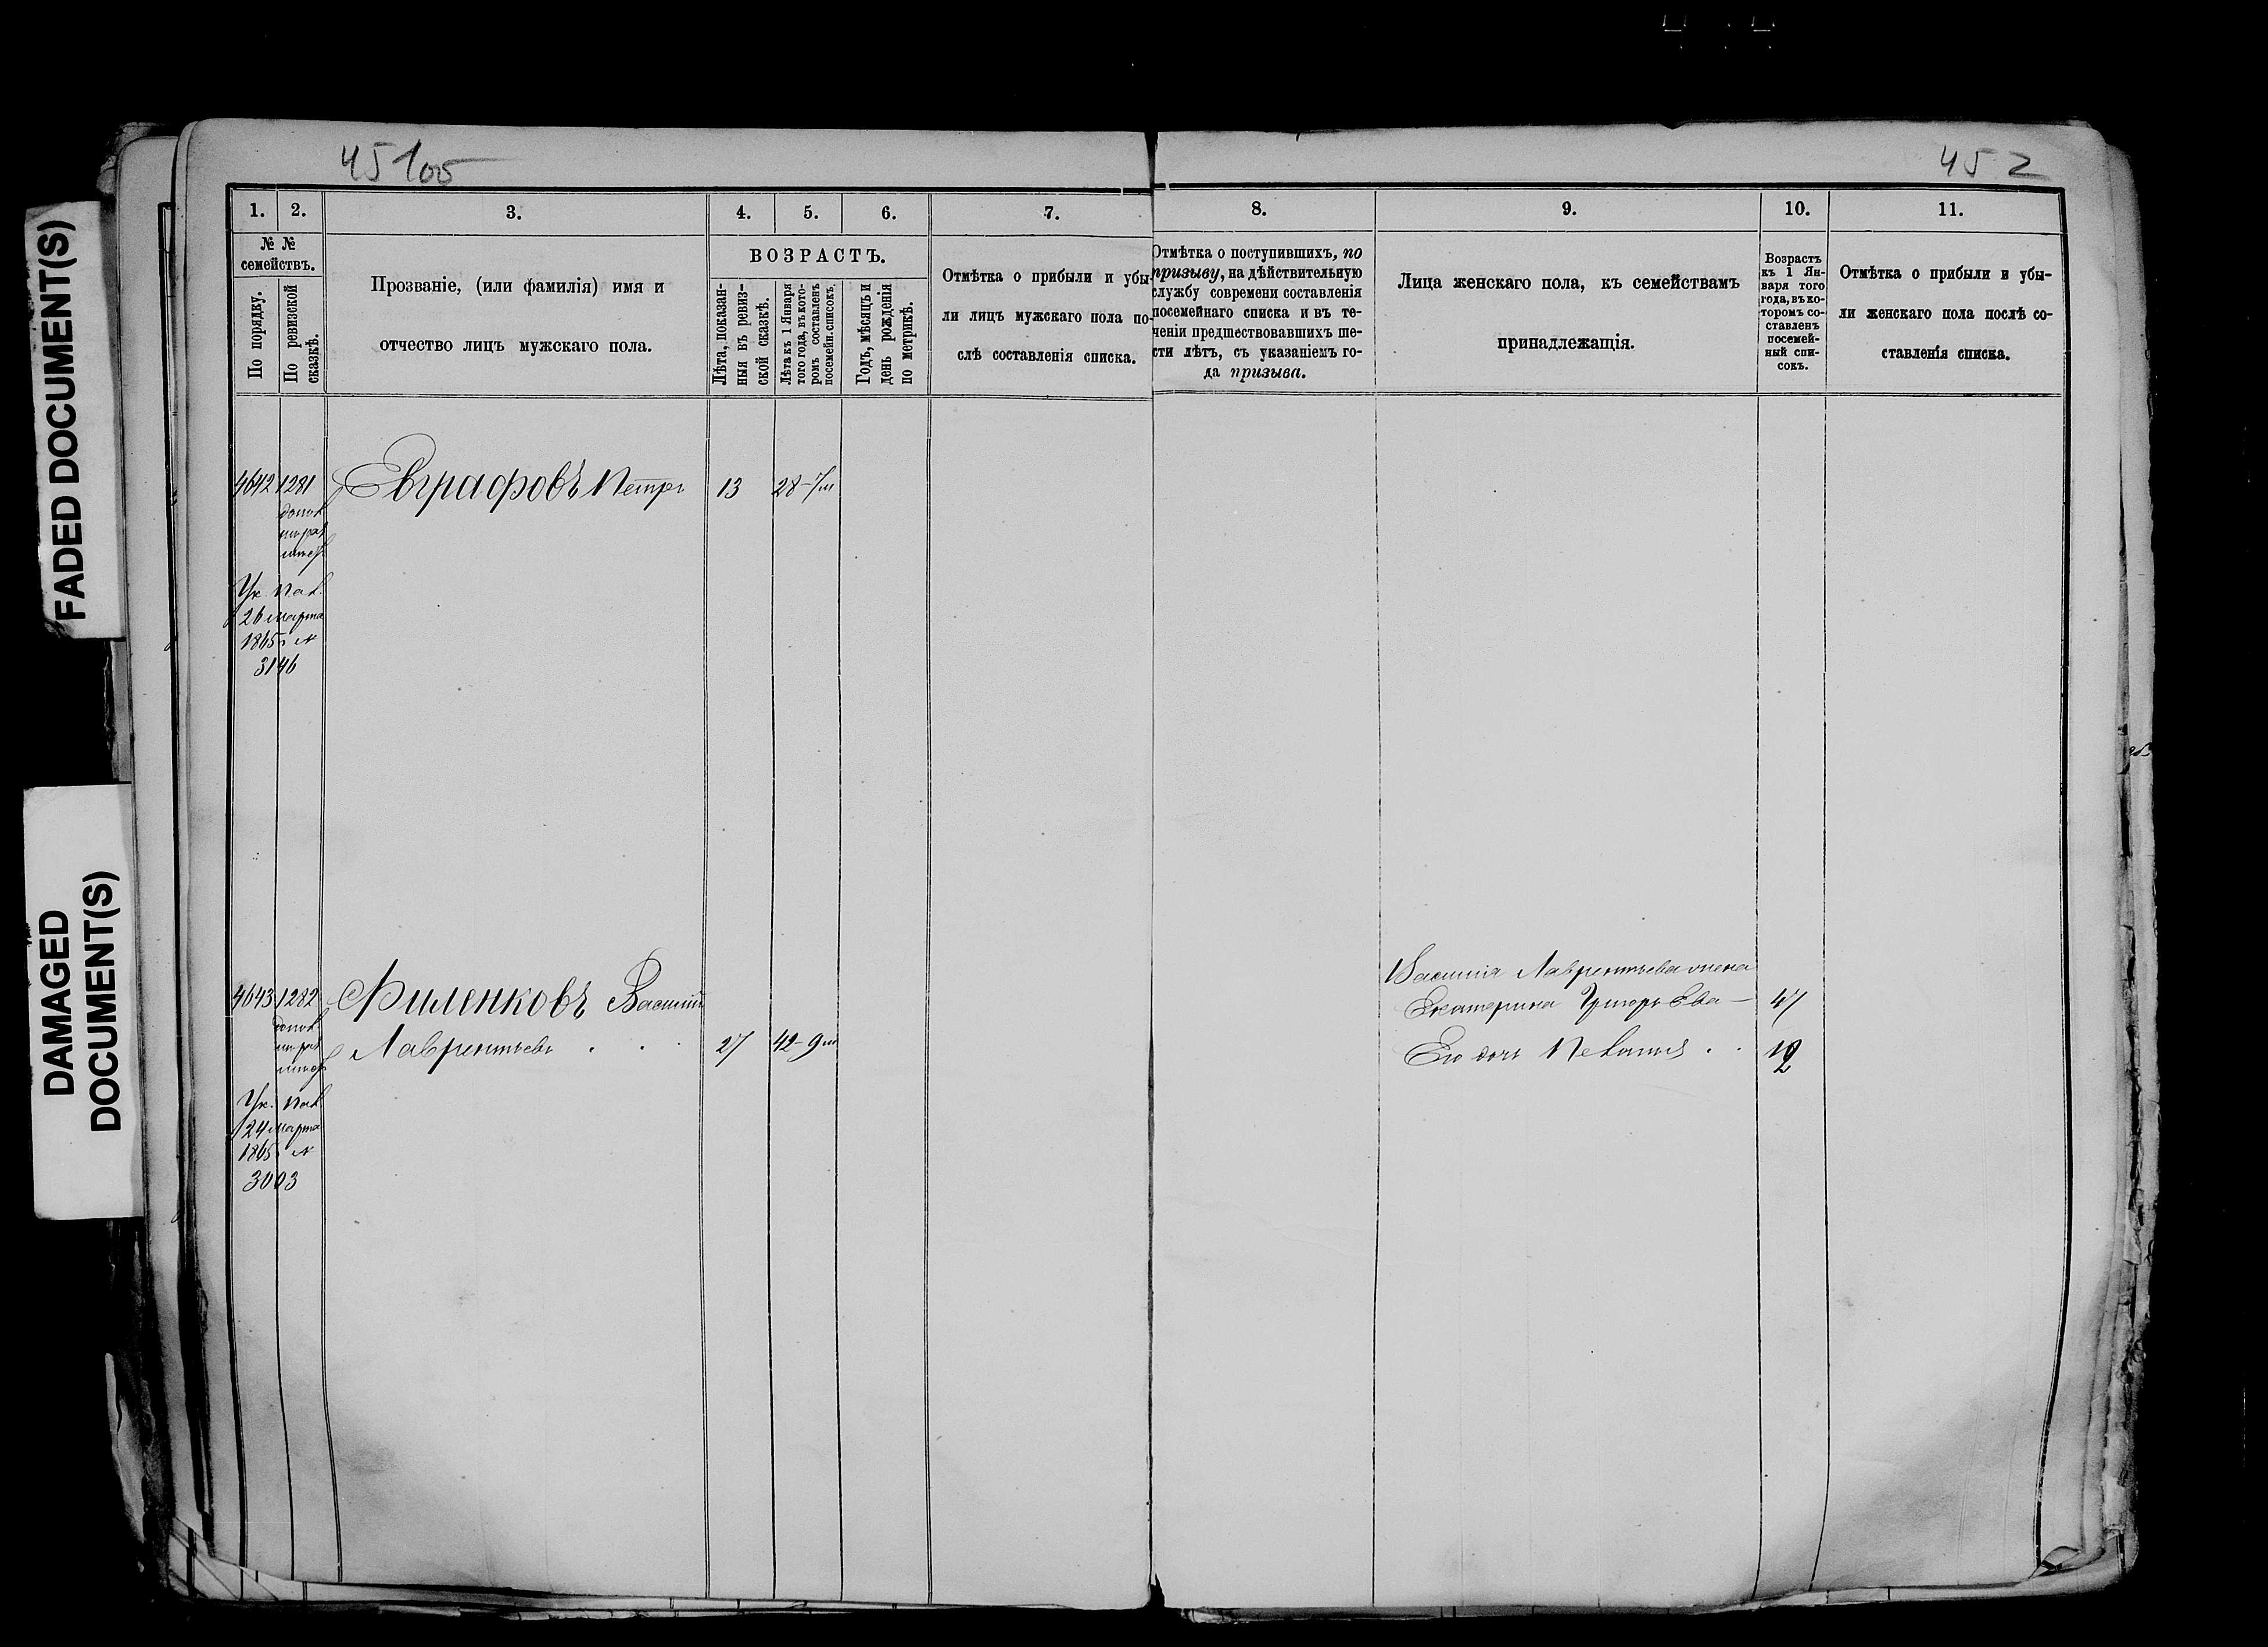 FADED DOCUMENT(S)
DAMAGED
DOCUMENT(S)
452
1.
2.
3.
4.
5.
6.
7.
№ №
семействъ.
По порядку.
По ревизской
сказкѣ.
Прозваніе, (или фамилія) имя и
отчество лицъ мужскаго пола.
ВОЗРАСТЪ.
Лѣта, показан-
ныя въ ревиз-
ской сказкѣ.
Лѣта къ 1 Января
того года, въ кото-
ромъ составленъ
посемейн. списокъ.
Годъ, мѣсяцъ и
день рожденія
по метрикѣ.
Отмѣтка о прибыли и убы-
ли лицъ мужскаго пола по-
слѣ составленія списка.
8.
9.
10.
11.
Отмѣтка о поступившихъ, по
призыву, на дѣйствительную
службу современи составленія
посемейнаго списка и въ те-
ченіи предшествовавшихъ ше-
сти лѣтъ, съ указаніемъ го-
да призыва.
Лица женскаго пола, къ семействамъ
принадлежащія.
Возрастъ
къ 1 Ян-
варя того
года, въ ко-
торомъ со-
ставленъ
посемей-
ный спи-
сокъ.
Отмѣтка о прибыли и убы-
ли женскаго пола послѣ со-
ставленія списка.
4642 1281 Евграфовъ Петръ 13 28-7м
Ук. Пал.
26 марта
1865 г №
3146
Василія Лаврентьева жена
4643 1282 Филенковъ Василій
Екатерина Григорьева — 47
Лаврентьевъ . . . 27 42-9м
Его дочь . .
Ук. Пал
24 марта
1865 №
3003